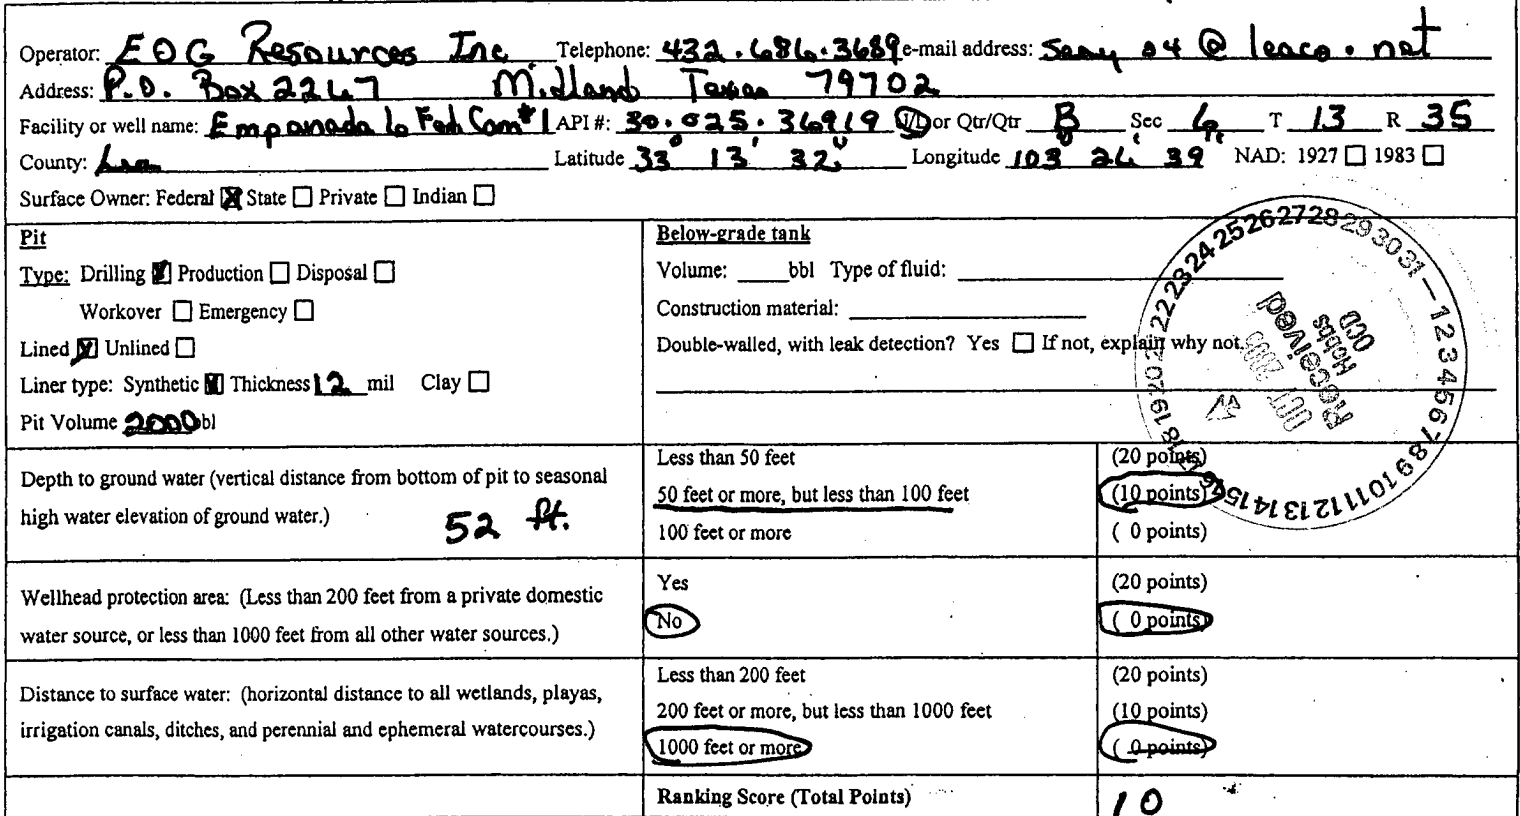 Operator: EOG Resources Inc. Telephone: 432.686.3689 e-mail address: seay 04 @ leaco.net
Address: P.O. Box 2267 Midland Texas 79702
Facility or well name: Empanada 6 Fed Com #1 API #: 30.025.36919 U/L or Qtr/Qtr B Sec 6 T 13 R 35
County: Lea Latitude 33° 13' 32" Longitude 103° 26' 39" NAD: 1927 ☐ 1983 ☐
Surface Owner: Federal ☒ State ☐ Private ☐ Indian ☐
Pit
Type: Drilling ☒ Production ☐ Disposal ☐
Workover ☐ Emergency ☐
Lined ☒ Unlined ☐
Liner type: Synthetic ☒ Thickness 12 mil Clay ☐
Pit Volume 2000 bbl
Below-grade tank
Volume: ____bbl Type of fluid:
Construction material:
Double-walled, with leak detection? Yes ☐ If not, explain why not.
22232425262728293031 — 1234567891011121314151617181920
Received
Hobbs
OCD
Depth to ground water (vertical distance from bottom of pit to seasonal
high water elevation of ground water.) 52 ft.
Less than 50 feet (20 points)
50 feet or more, but less than 100 feet (10 points)
100 feet or more ( 0 points)
Wellhead protection area: (Less than 200 feet from a private domestic
water source, or less than 1000 feet from all other water sources.)
Yes (20 points)
No ( 0 points)
Distance to surface water: (horizontal distance to all wetlands, playas,
irrigation canals, ditches, and perennial and ephemeral watercourses.)
Less than 200 feet (20 points)
200 feet or more, but less than 1000 feet (10 points)
1000 feet or more ( 0 points)
Ranking Score (Total Points) 10